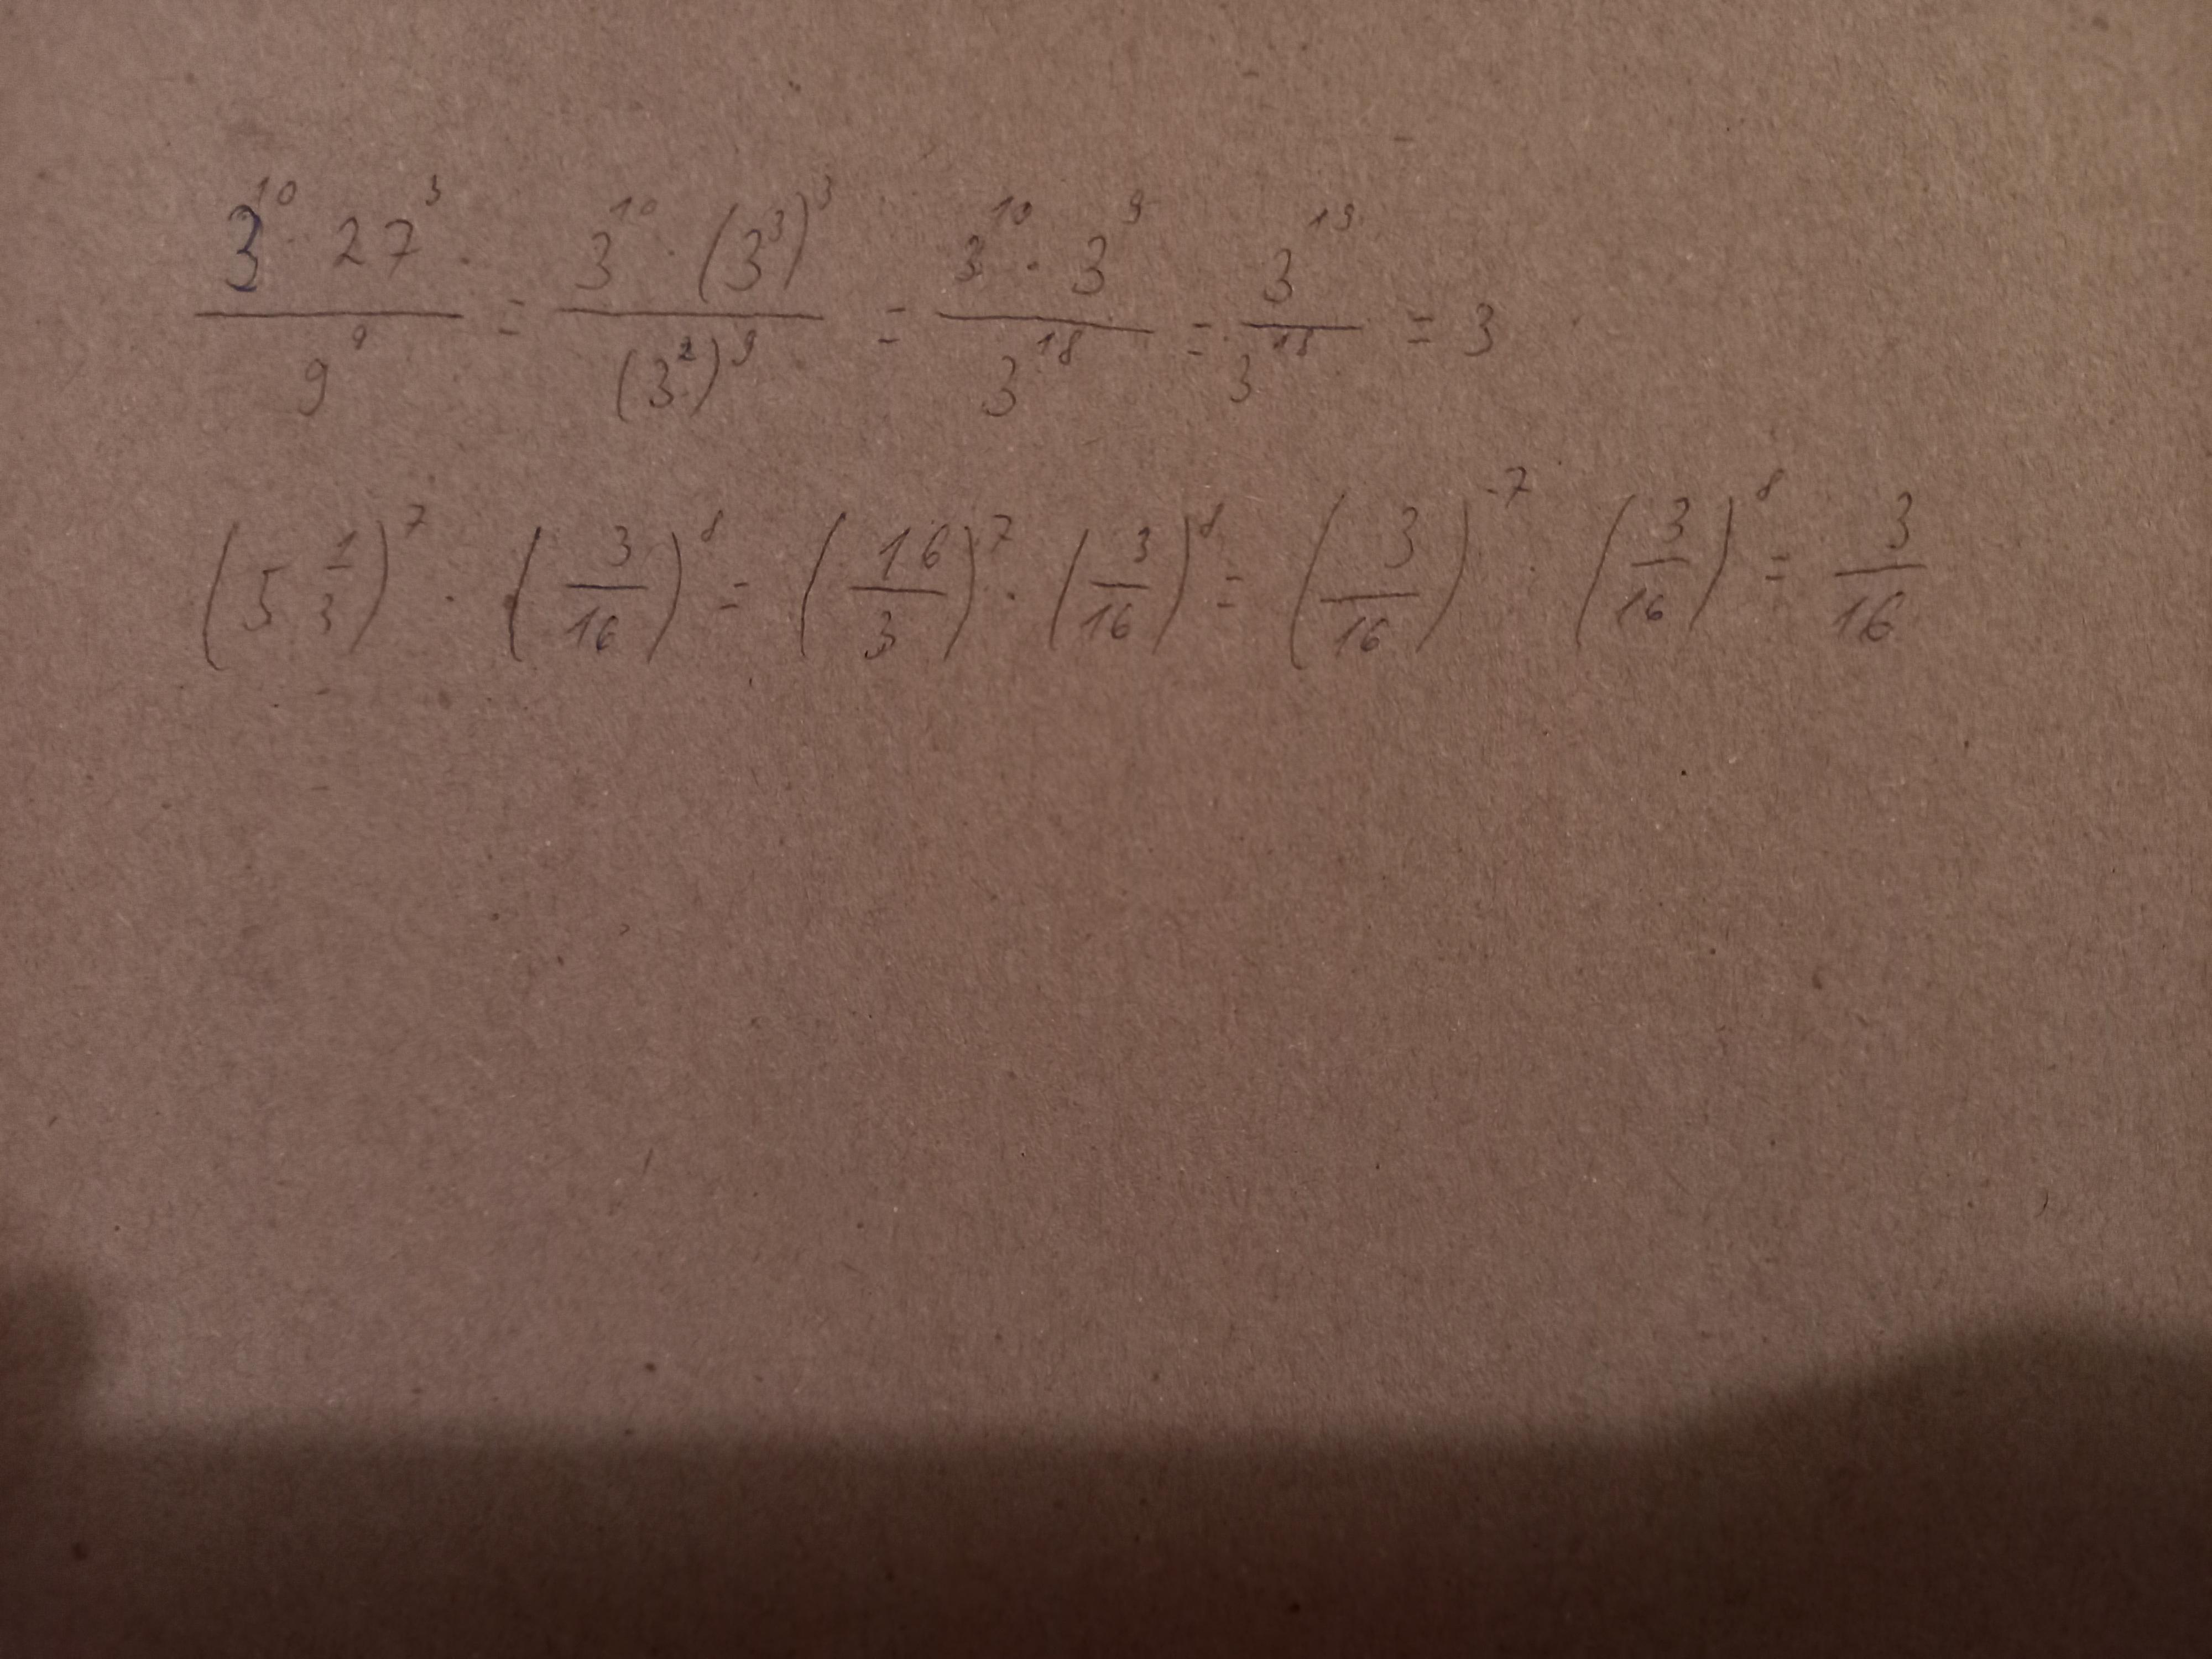 3^10 · 27^3 / 9^9 = 3^10 · (3^3)^3 / (3^2)^9 = 3^10 · 3^9 / 3^18 = 3^19 / 3^18 = 3
(5 1/3)^7 · (3/16)^8 = (16/3)^7 · (3/16)^8 = (3/16)^-7 · (3/16)^8 = 3/16